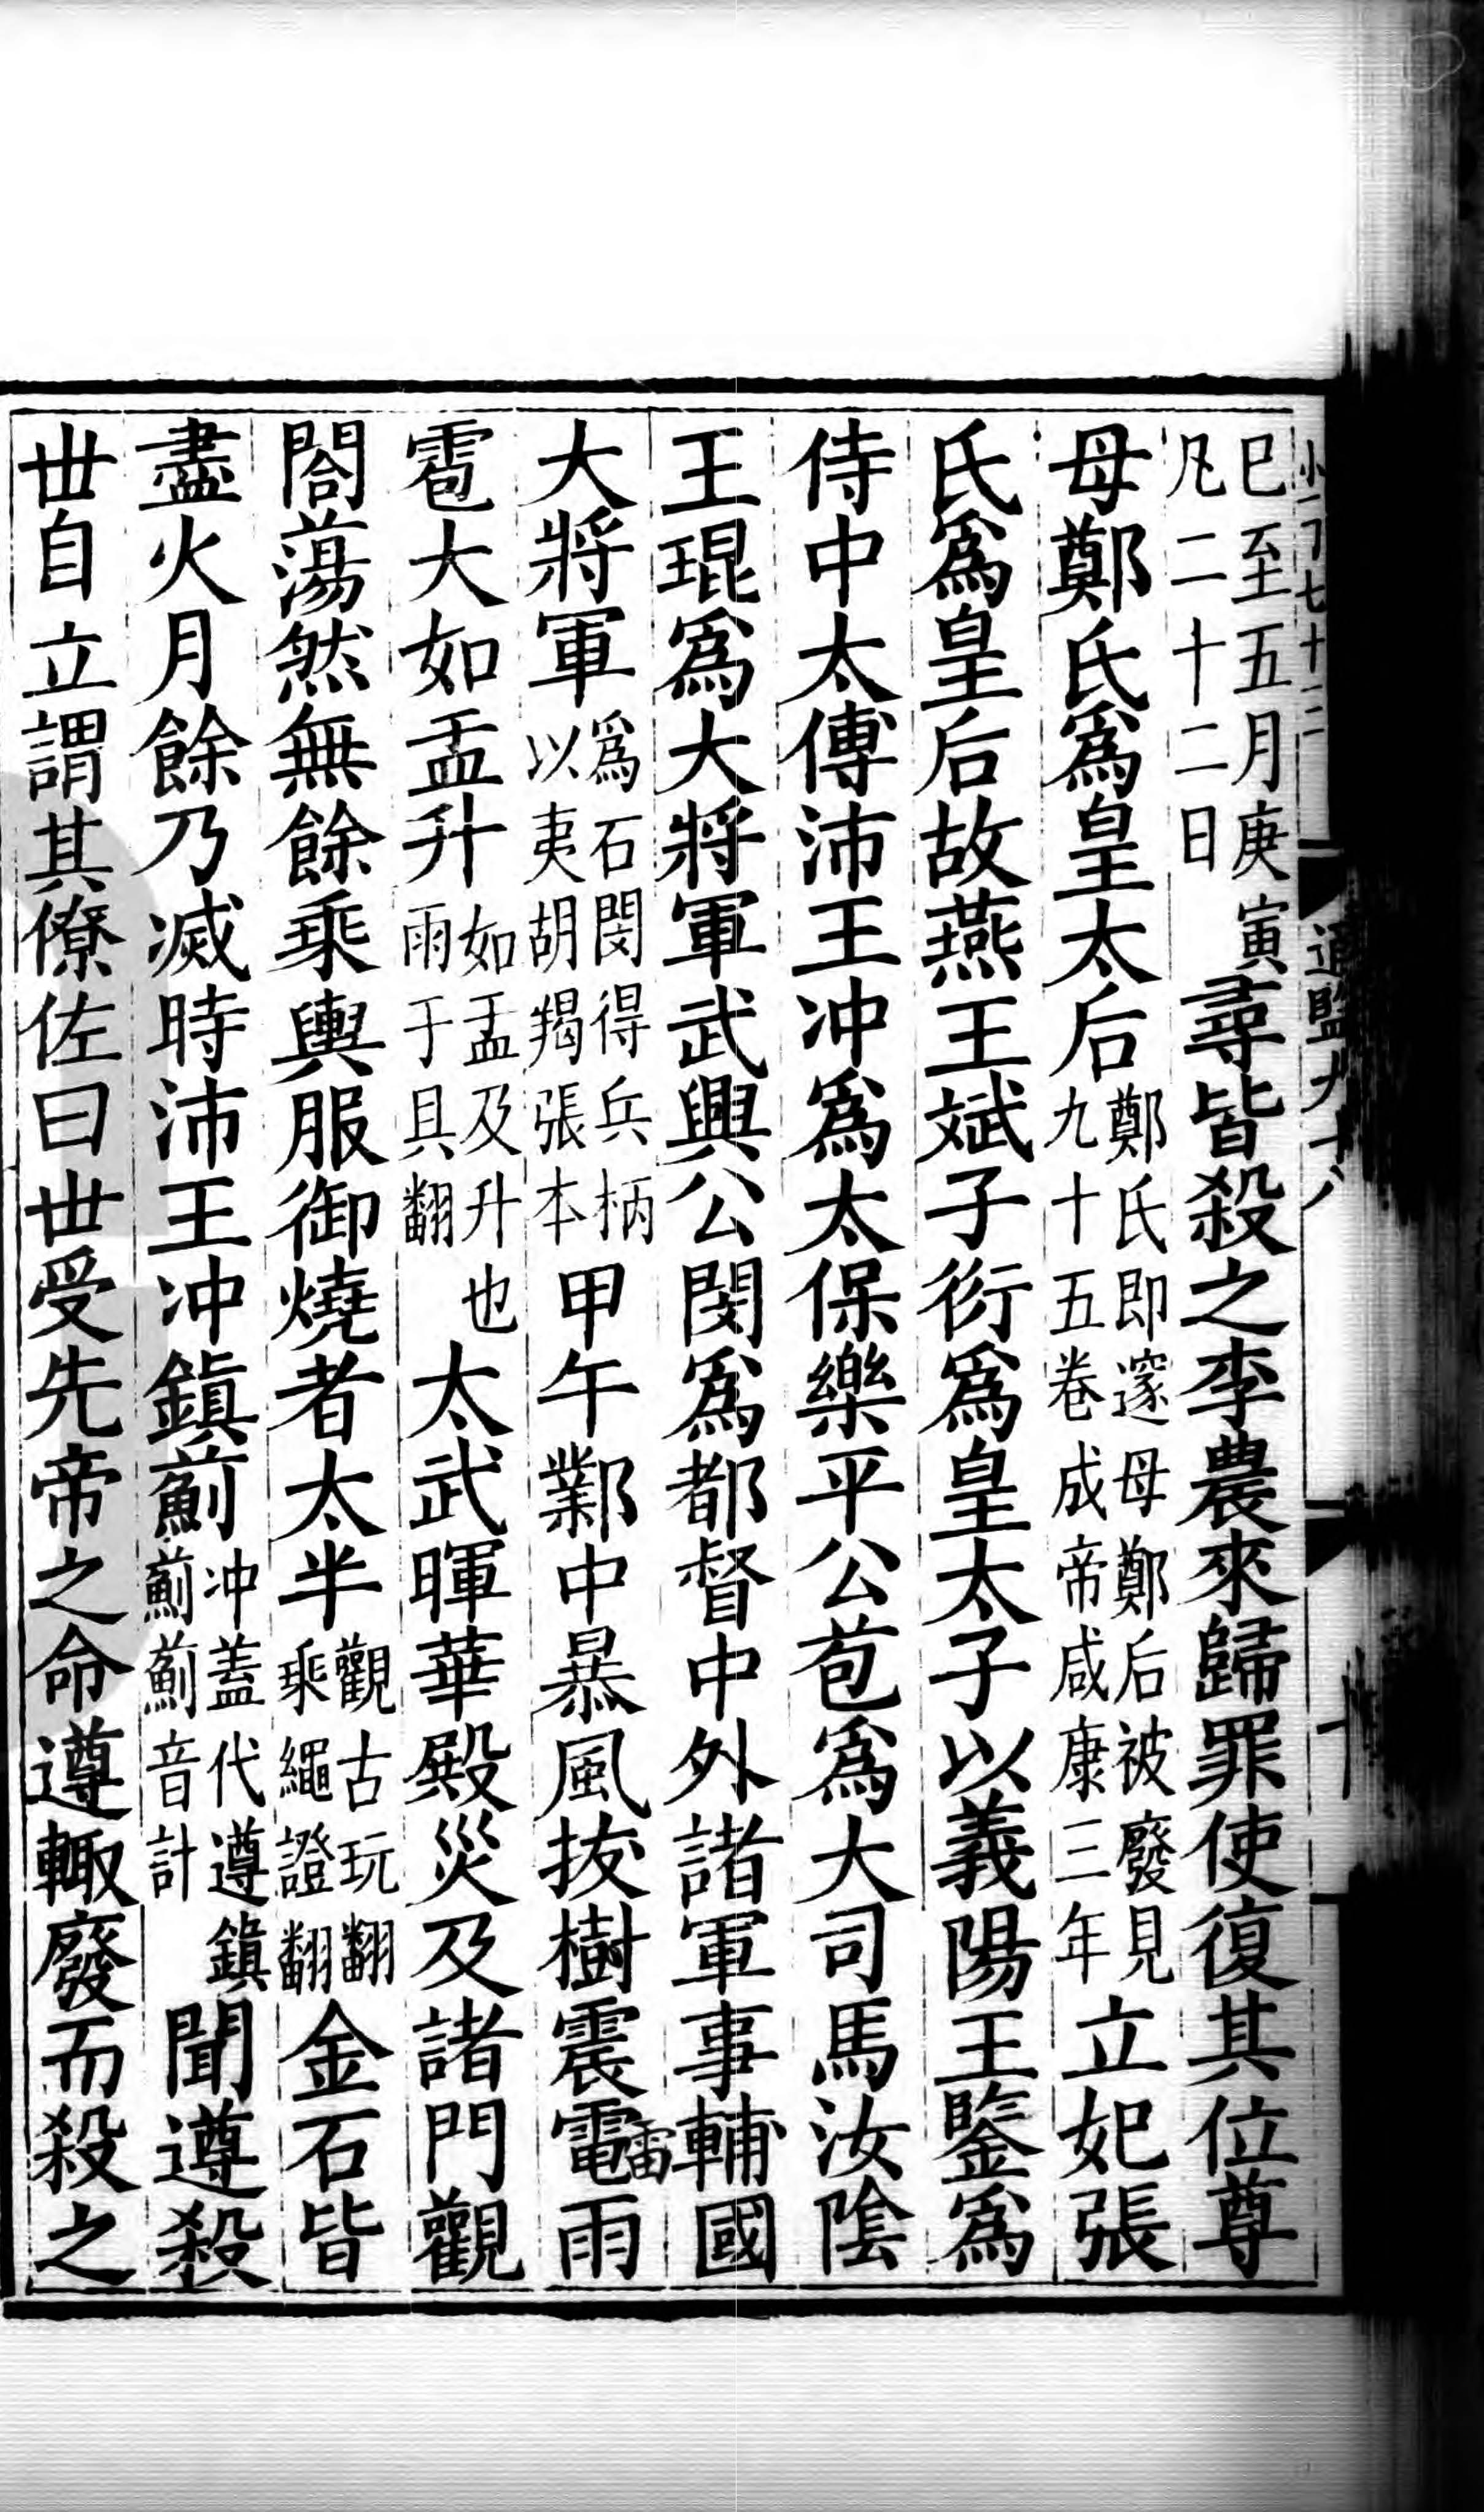 巳至五月庚寅凡二十二日尋皆殺之李農來歸罪使復其位尊
母鄭氏爲皇太后鄭氏即邃母鄭后被廢見九十五卷成帝咸康三年立妃張
氏爲皇后故燕王斌子衍爲皇太子以義陽王鑒爲
侍中太傅沛王冲爲太保樂平公苞爲大司馬汝陰
王琨爲大將軍武興公閔爲都督中外諸軍事輔國
大將軍爲石閔得兵柄以夷胡羯張本甲午鄴中暴風拔樹震電雷雨
雹大如盂升如盂及升也雨于具翻太武暉華殿災及諸門觀
閤蕩然無餘乘輿服御燒者太半觀古玩翻乘繩證翻金石皆
盡火月餘乃滅時沛王冲鎮薊冲蓋代遵鎮薊薊音計聞遵殺
丗自立謂其僚佐曰丗受先帝之命遵輙廢而殺之